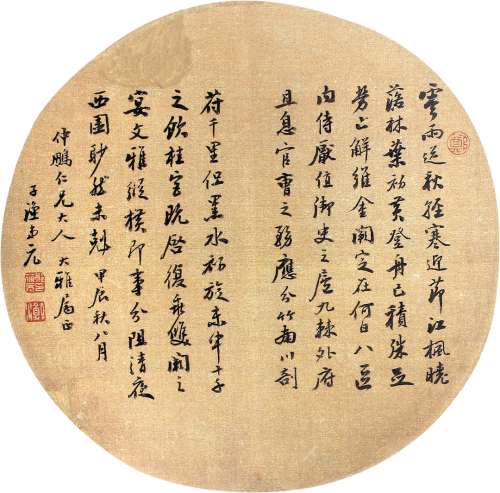 零雨送秋輕寒迎節江楓曉
落林葉初黃登舟已積殊足
勞止解維金闕定在何日八區
內侍厭值御史之廬九棘外府
且息官曹之務應分竹南川剖
符千里但黑水初旋未申十千
之飲桂宮既啓復乖雙闕之
宴文雅縱橫即事分阻清夜
西園眇然未剋 甲辰秋八月
仲鵬仁兄大人 大雅屬正
子漁